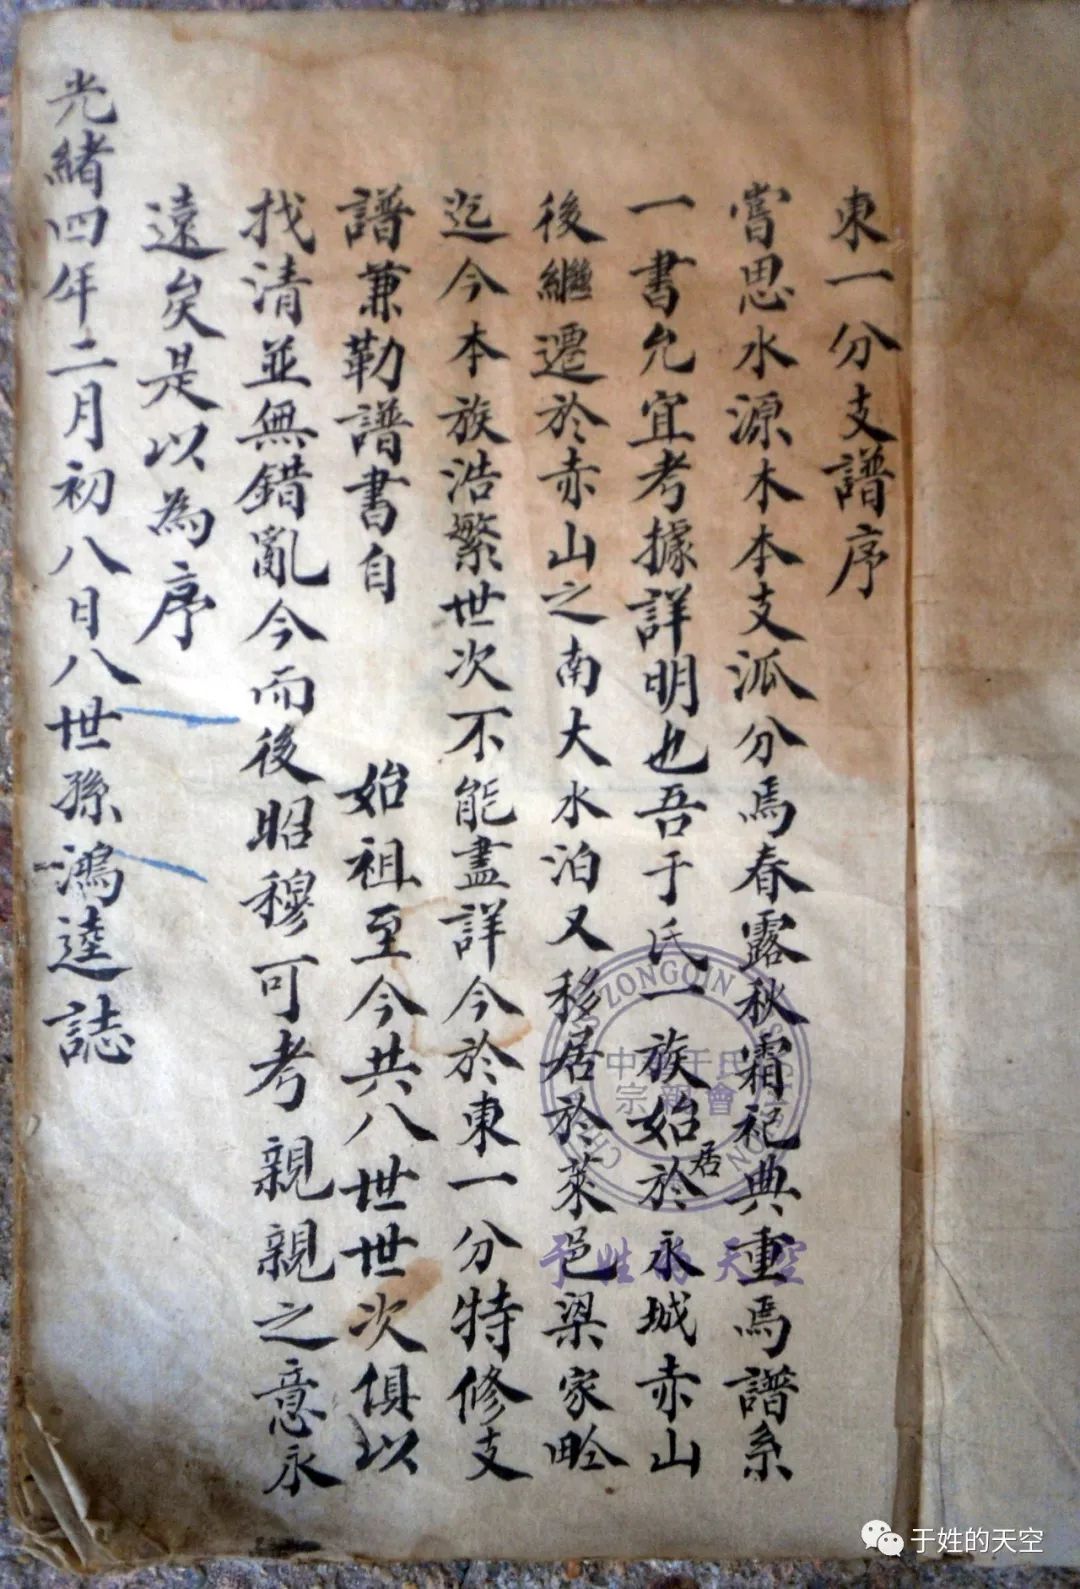 東一分支譜序
嘗思水源木本支派分焉春露秋霜祀典重焉譜系
一書允宜考據詳明也吾于氏一族始居於永城赤山
後繼遷於赤山之南大水泊又移居於萊邑梁家畛
迄今本族浩繁世次不能盡詳今於東一分特修支
譜兼勒譜書自 始祖至今共八世世次俱以
找清並無錯亂今而後昭穆可考親親之意永
遠矣是以為序
光緒四年二月初八日八世孫鴻逵誌
ZONGQIN
于氏
宗親會
于姓的天空
于姓的天空